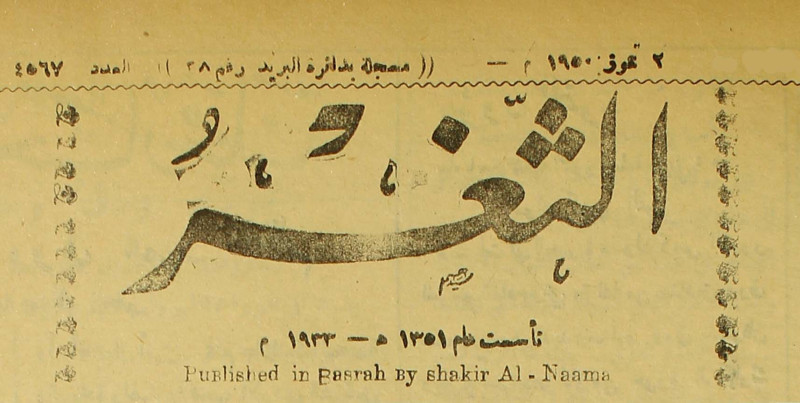 ٢ تموز ١٩٥٠ م — (( مسجلة بدائرة البريد رقم ٢٨ )) العدد ٤٥٦٧
الثَّغْرُ
تأسست عام ١٣٥١ ه — ١٩٣٣ م
Published in Basrah By shakir Al - Naama